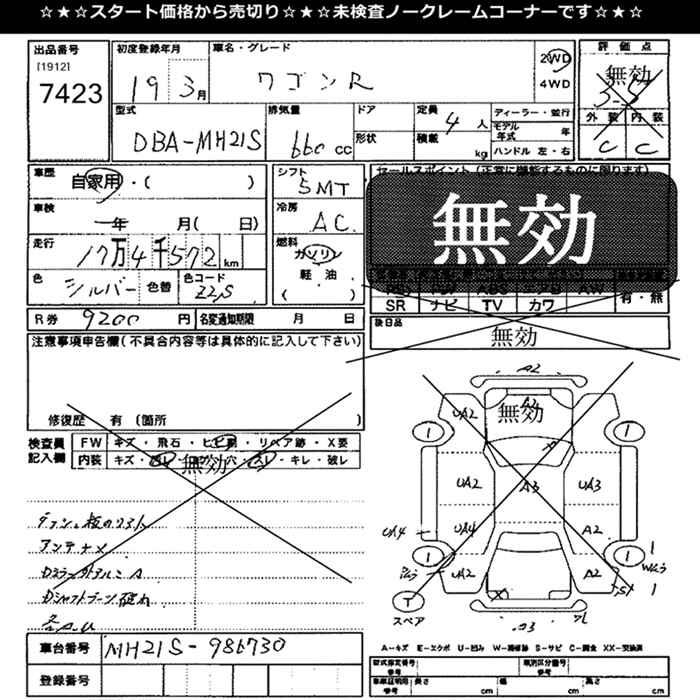 ☆★☆★スタート価格から売切り☆★☆★未検査ノークレームコーナーです☆★☆
出品番号 初度登録年月 車名・グレード 評価点
[1912] 7423 19 3月 ワゴンR 2WD 4WD 無効
外装 内装
C C
型式 排気量 ドア 定員 ディーラー・並行
DBA-MH21S 660 cc 形状 4人 モデル年式 年
積載 kg ハンドル 左・右
車歴 自家用・( ) シフト 5MT セールスポイント(正常に機能するものに限ります)
車検 年 月( 日) 冷房 AC 無効
走行 17万4千572km 燃料 ガソリン
色 シルバー 色替 色コード Z2S 軽油 ( )
SR ナビ TV カワ 有・無
R券 9200円 名変通知期限 月 日 後日品
無効
注意事項申告欄(不具合内容等は具体的に記入して下さい)
修復歴 有 (箇所 )
検査員記入欄 FW キズ・飛石・ヒビ割・リペア跡・X要
内装 キズ・汚レ・コゲ穴・スレ・キレ・破レ
無効
アンテナ✕
A2
UA2 A2 UA2
無効
1 1
UA2 A3 UA3
UA4 UA4 A2
1 1
UA2 A2
T スペア
A-キズ E-エクボ U-凹み W-補修跡 S-サビ C-腐食 XX-交換済
車台番号 MH21S-986730
登録番号
型式指定番号 参考 類別区分番号 参考
車庫証明用 参考 長さ cm 幅 cm 高さ cm